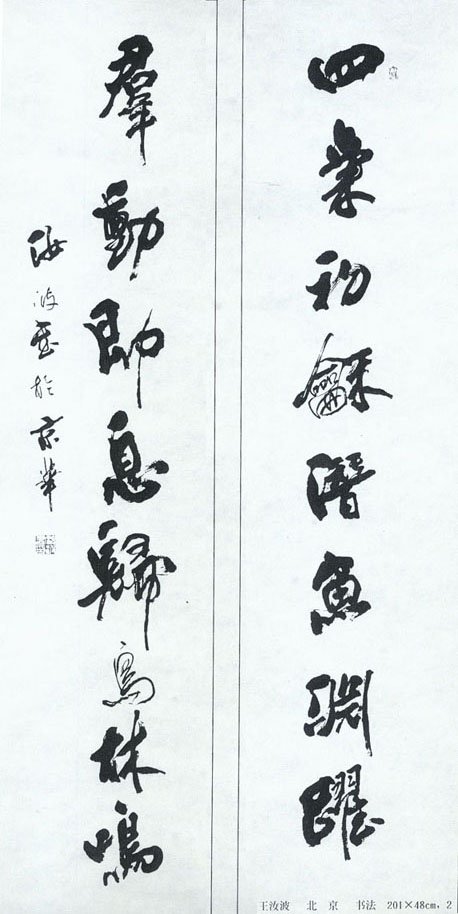 四氣初龢潛魚淵躍
羣動即息歸鳥林鳴
汝波書於京華
王汝波 北京 书法 201×48cm,2